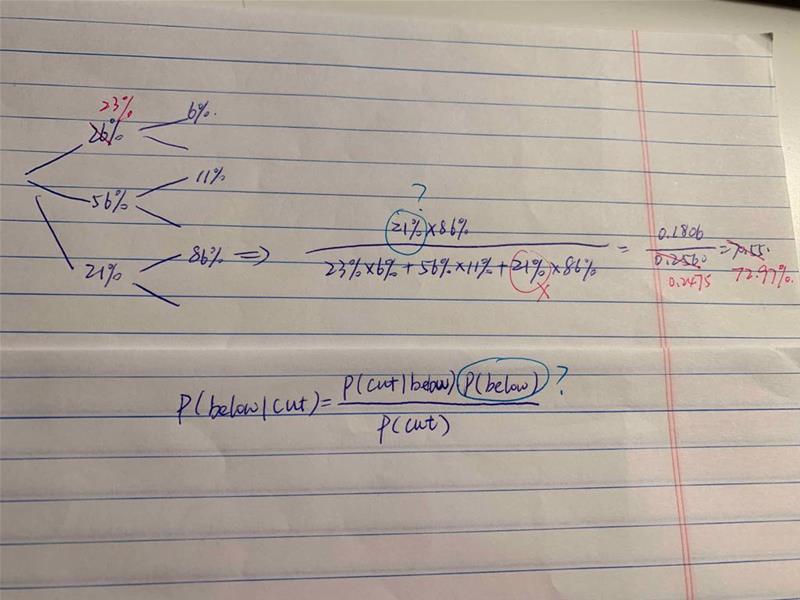 23%
26%
6%.
56%
11%
21%
86% ⇒
?
21% × 86%
23% × 6% + 56% × 11% + 21% × 86%
x
= 0.1806
0.2560
0.2475
= 70.55.
72.97%.
P(below|cut) = P(cut|below) P(below) ?
P(cut)